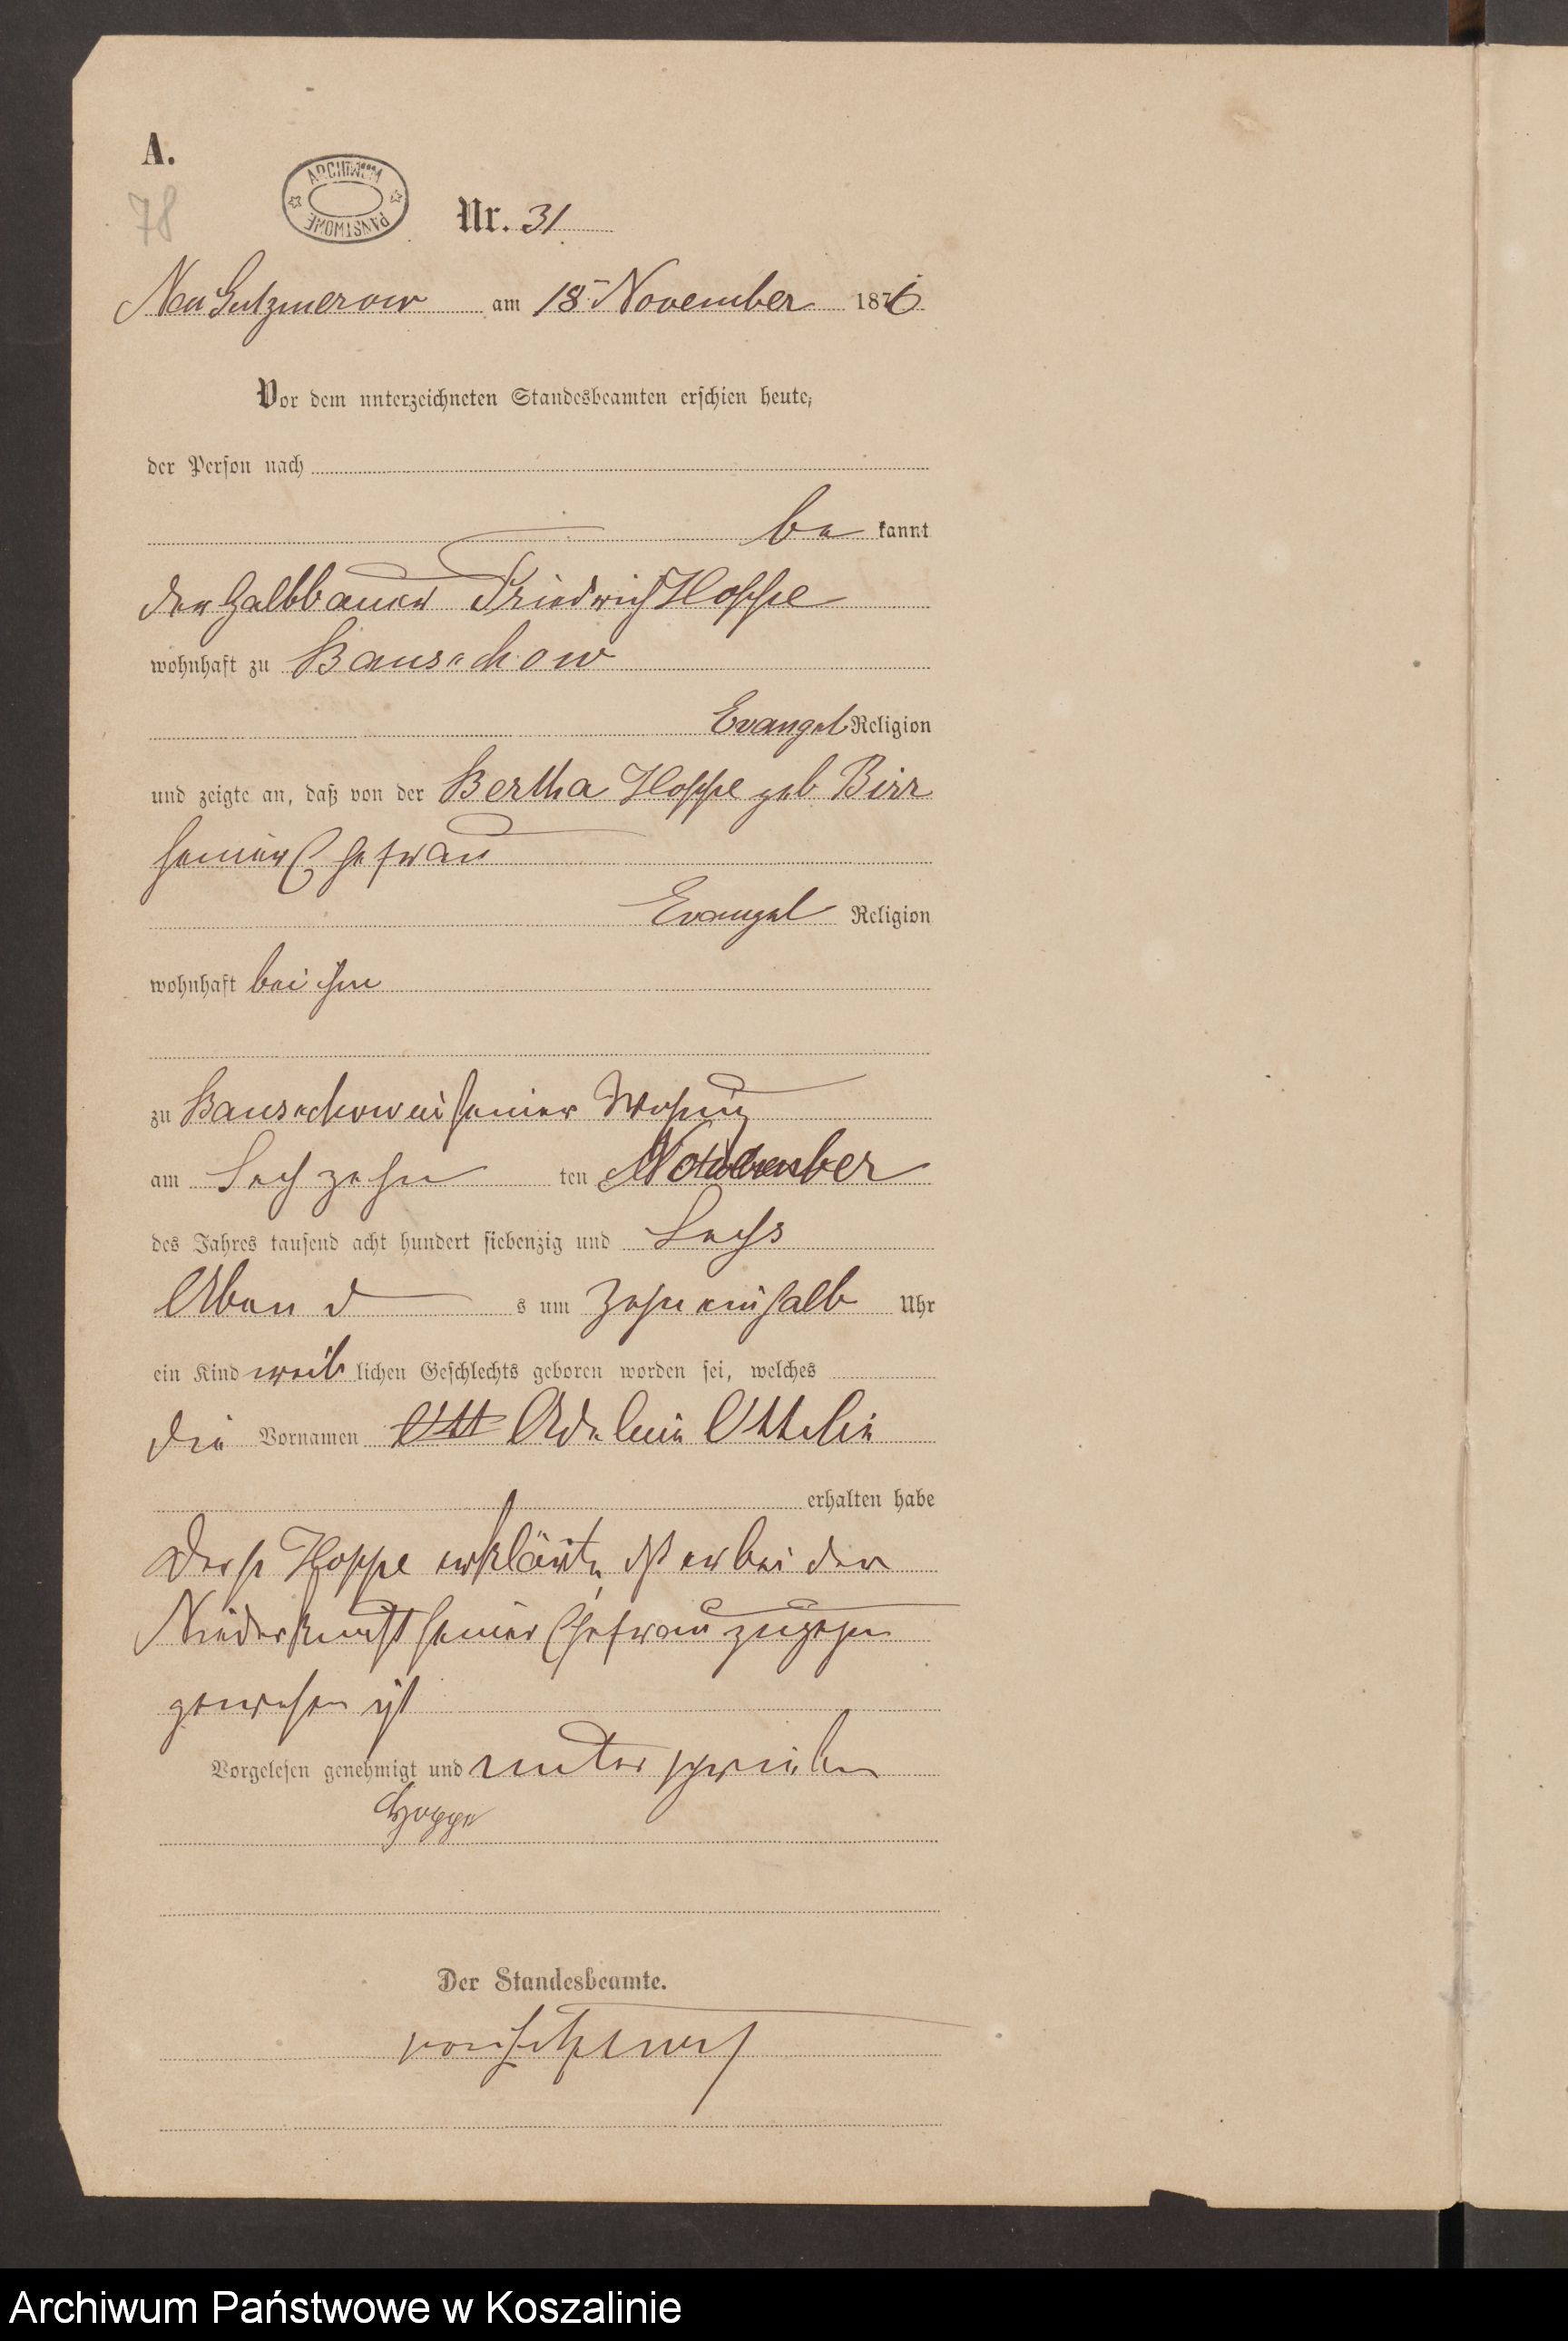 A.
78
ARCHIWUM
PAŃSTWOWE
Nr. 31
Neu Gutzmerow am 18 November 1876
Vor dem unterzeichneten Standesbeamten erschien heute,
der Person nach
be kannt
der Halbbauer Friedrich Hoppe
wohnhaft zu
Evangel Religion
und zeigte an, daß von der Bertha Hoppe geb Birr
seiner Ehefrau
Evangel Religion
wohnhaft bei ihm
zu seiner Wohnung
am Sechzehn ten November
des Jahres tausend acht hundert siebenzig und Sechs
Abend s um Zehn einhalb Uhr
ein Kind weib lichen Geschlechts geboren worden sei, welches
die Vornamen Ott Ottilie
erhalten habe
Hoppe erklärte, er bei der
Niederkunft seiner Ehefrau zugegen
gewesen ist
Vorgelesen genehmigt und unterschrieben
Hoppe
Der Standesbeamte.
Archiwum Państwowe w Koszalinie